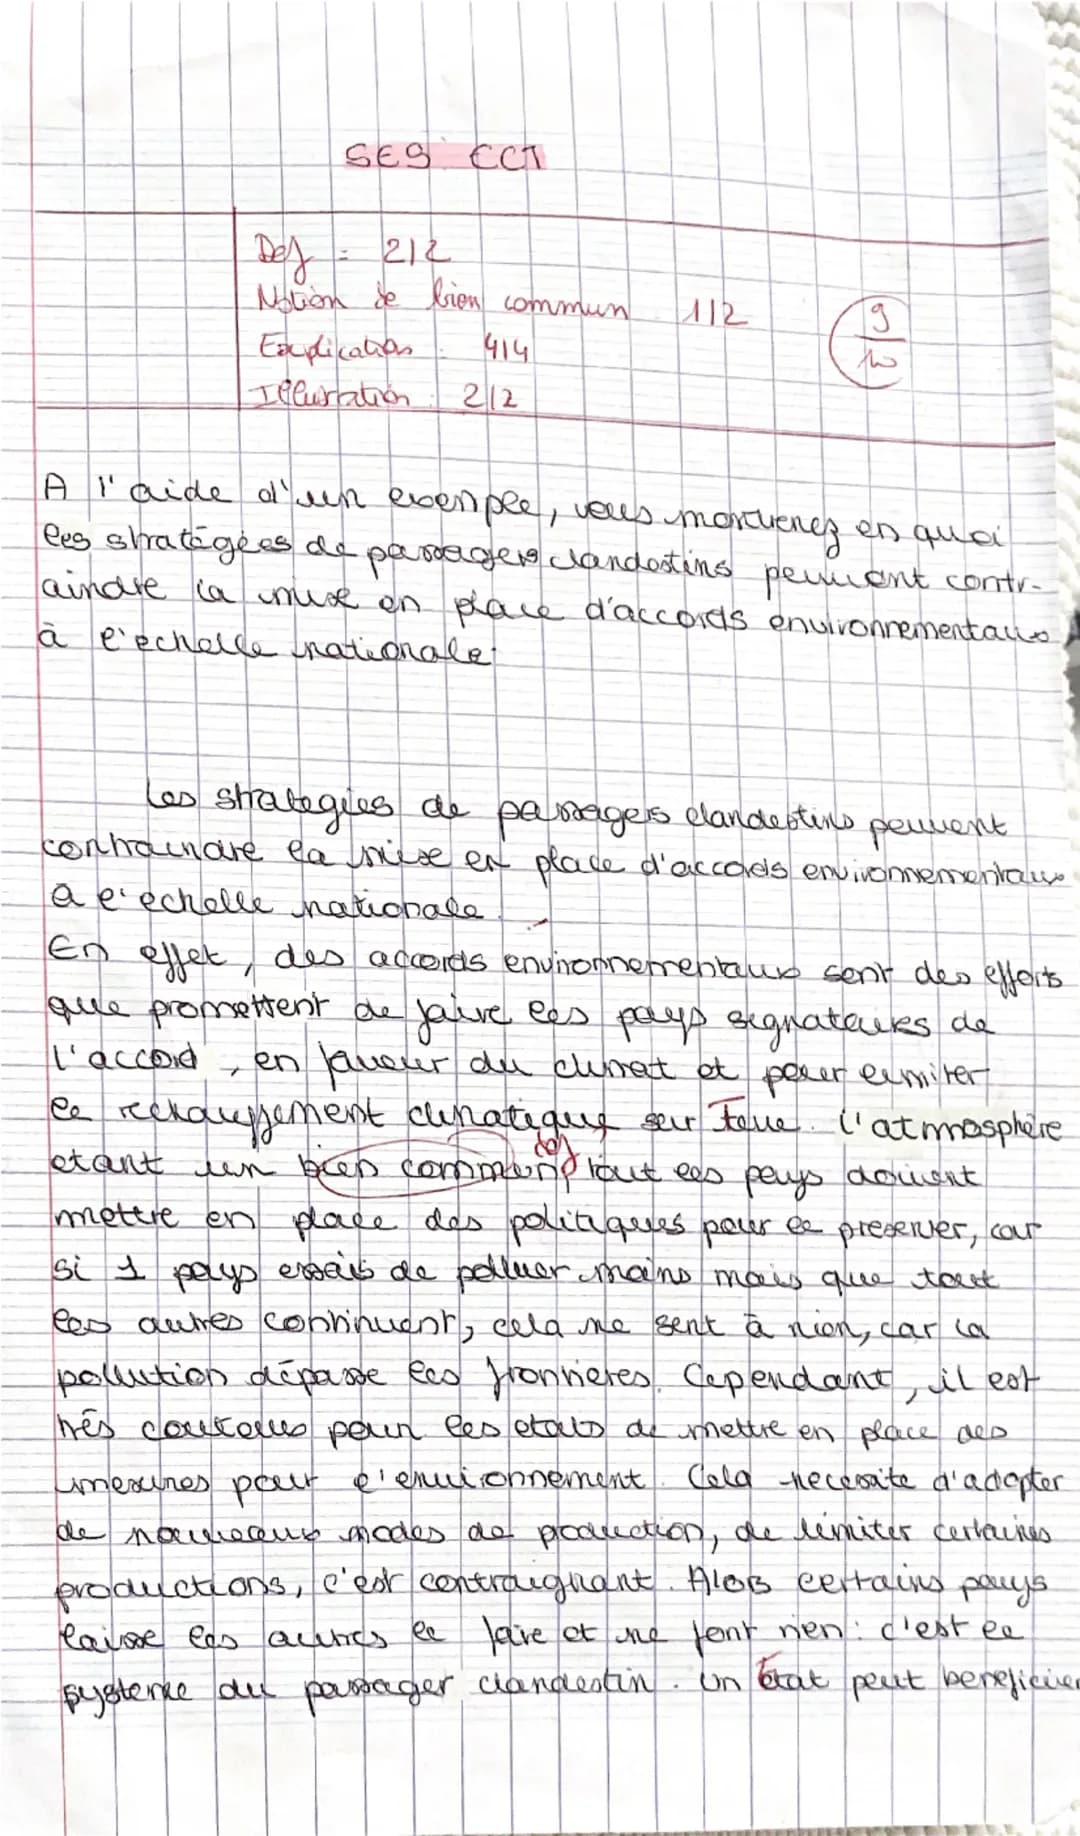 SES EC1
Def = 2/2
Notion de bien commun 1/2
Explication : 4/4
Illustration : 2/2
9/10
A l'aide d'un exemple, vous montrerez en quoi
les stratégies de passagers clandestins peuvent contr-
aindre la mise en place d'accords environnementaux
à l'échelle nationale.
Les strategies de passagers clandestins peuvent
contraindre la mise en place d'accords environnementaux
a l'echelle nationale.
En effet, des accords environnementaux sont des efforts
que promettent de faire les pays signataires de
l'accord, en faveur du climat et pour limiter
le rechauffement climatique sur Terre. L'atmosphère
etant un bien commun, def tout les pays doivent
mettre en place des politiques pour le preserver, car
si 1 pays essais de polluer moins mais que tout
les autres continuent, cela ne sert à rien, car la
pollution dépasse les frontieres. Cependant, il est
très couteux pour les etats de mettre en place des
mesures pour l'environnement. Cela necessite d'adopter
de nouveaux modes de production, de limiter certaines
productions, c'est contraignant. Alors certains pays
laisse les autres le faire et ne font rien : c'est le
systeme du passager clandestin. Un État peut beneficier